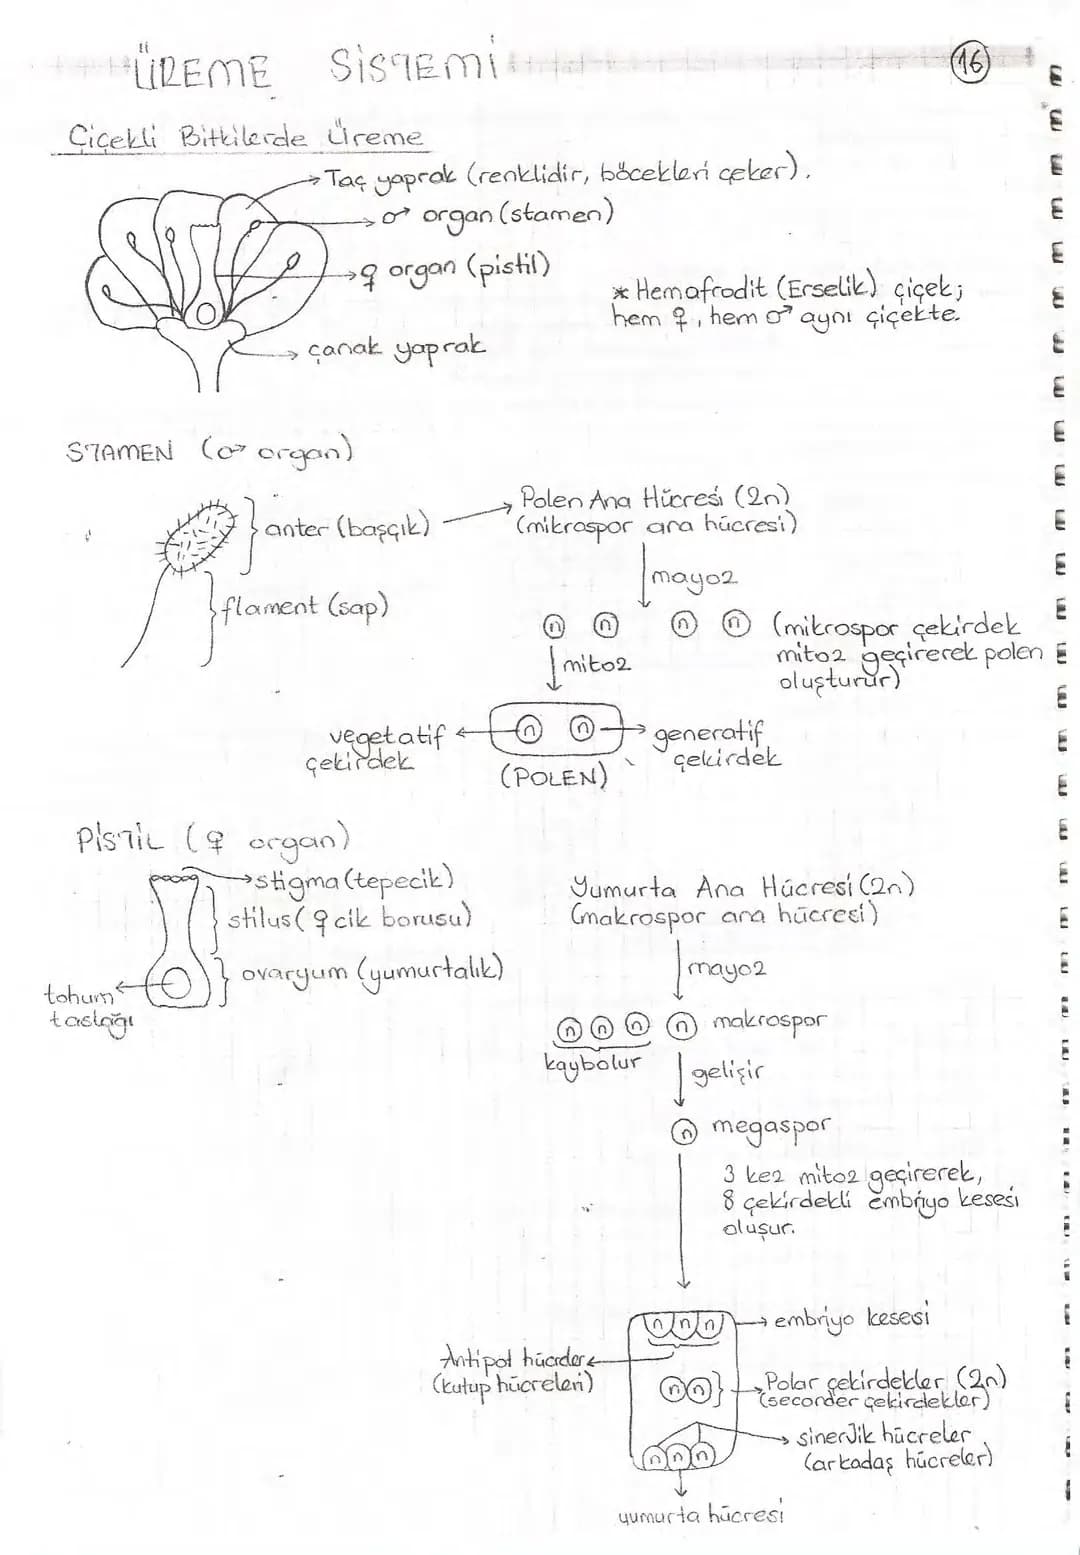 ÜREME SİSTEMİ
16
Çiçekli Bitkilerde Üreme
Taç yaprak (renklidir, böcekleri çeker).
♂ organ (stamen)
♀ organ (pistil)
* Hemafrodit (Erselik) çiçek;
hem ♀, hem ♂ aynı çiçekte.
çanak yaprak
STAMEN (♂ organ)
anter (başçık)
Polen Ana Hücresi (2n)
(mikrospor ana hücresi)
flament (sap)
mayoz
n n n n (mikrospor çekirdek
mitoz geçirerek polen
oluşturur)
mitoz
vegetatif
çekirdek
n n
generatif
çekirdek
(POLEN)
PİSTİL (♀ organ)
stigma (tepecik)
stilus (♀cik borusu)
ovaryum (yumurtalık)
tohum
taslağı
Yumurta Ana Hücresi (2n)
(makrospor ana hücresi)
mayoz
n n n n makrospor
kaybolur
gelişir
n megaspor
3 kez mitoz geçirerek,
8 çekirdekli embriyo kesesi
oluşur.
n n n
embriyo kesesi
Antipot hücreler
(kutup hücreleri)
n n
Polar çekirdekler (2n)
(seconder çekirdekler)
sinerJik hücreler
(arkadaş hücreler)
n n n
yumurta hücresi